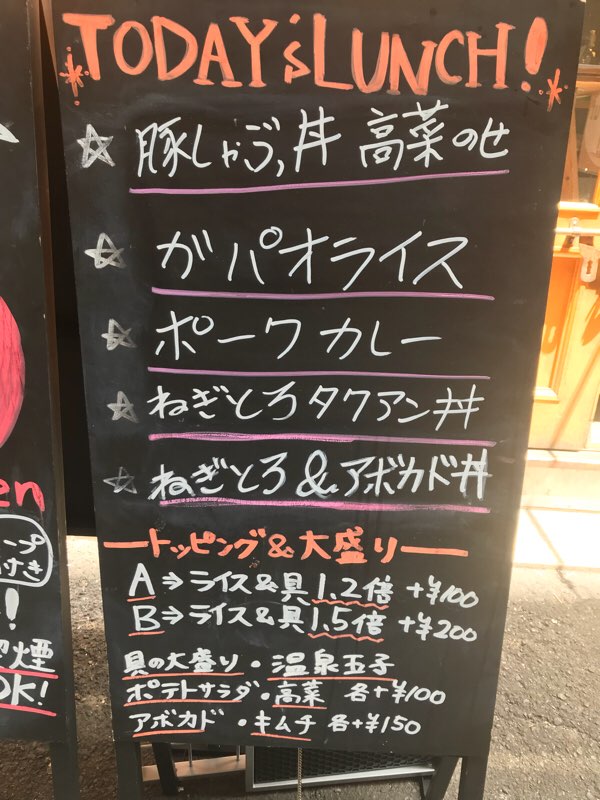 TODAY'S LUNCH!
☆ 豚しゃぶ丼 高菜のせ
☆ ガパオライス
☆ ポークカレー
☆ ねぎとろタクアン丼
☆ ねぎとろ&アボカド丼
トッピング&大盛り
A→ライス&具1.2倍 +¥100
B→ライス&具1.5倍 +¥200
具の大盛り・温泉玉子
ポテトサラダ・高菜 各+¥100
アボカド・キムチ 各+¥150
en
ープ
けき
!
喫煙
OK!